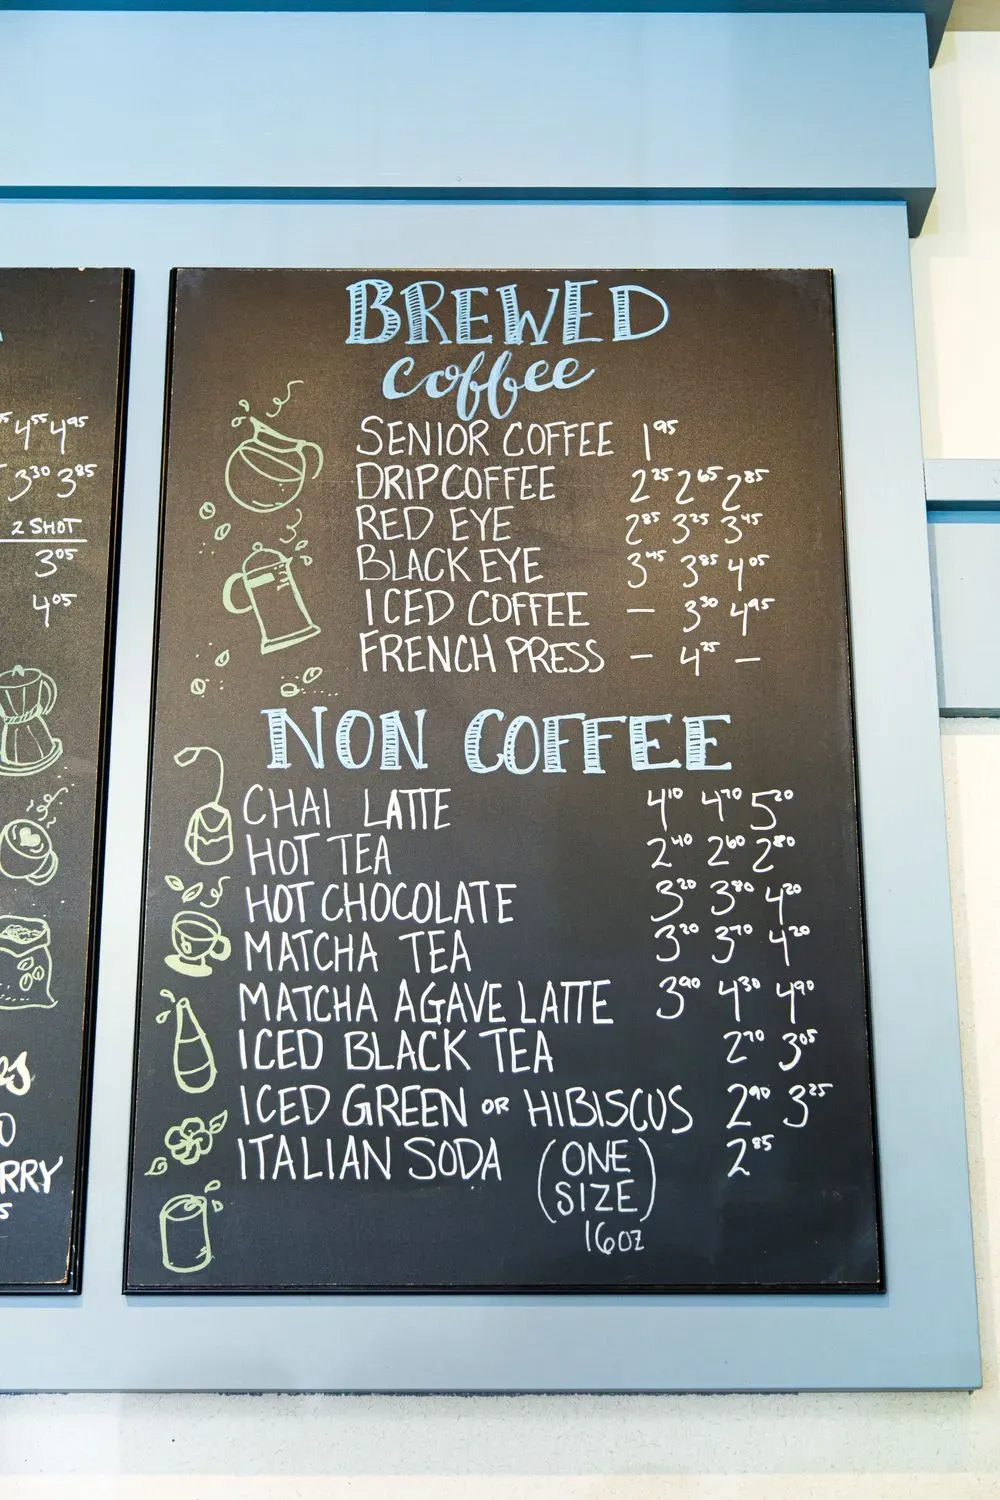 4⁵⁵ 4⁹⁵
3³⁰ 3⁸⁵
2 SHOT
3⁰⁵
4⁰⁵
RRY
BREWED
coffee
SENIOR COFFEE 1⁹⁵
DRIP COFFEE 2²⁵ 2⁶⁵ 2⁸⁵
RED EYE 2⁸⁵ 3²⁵ 3⁴⁵
BLACK EYE 3⁴⁵ 3⁸⁵ 4⁰⁵
ICED COFFEE – 3³⁰ 4⁹⁵
FRENCH PRESS – 4²⁵ –
NON COFFEE
CHAI LATTE 4¹⁰ 4⁷⁰ 5²⁰
HOT TEA 2⁴⁰ 2⁶⁰ 2⁸⁰
HOT CHOCOLATE 3²⁰ 3⁸⁰ 4²⁰
MATCHA TEA 3²⁰ 3⁷⁰ 4²⁰
MATCHA AGAVE LATTE 3⁹⁰ 4³⁰ 4⁹⁰
ICED BLACK TEA 2⁷⁰ 3⁰⁵
ICED GREEN OR HIBISCUS 2⁹⁰ 3²⁵
ITALIAN SODA (ONE SIZE) 2⁸⁵
16oz